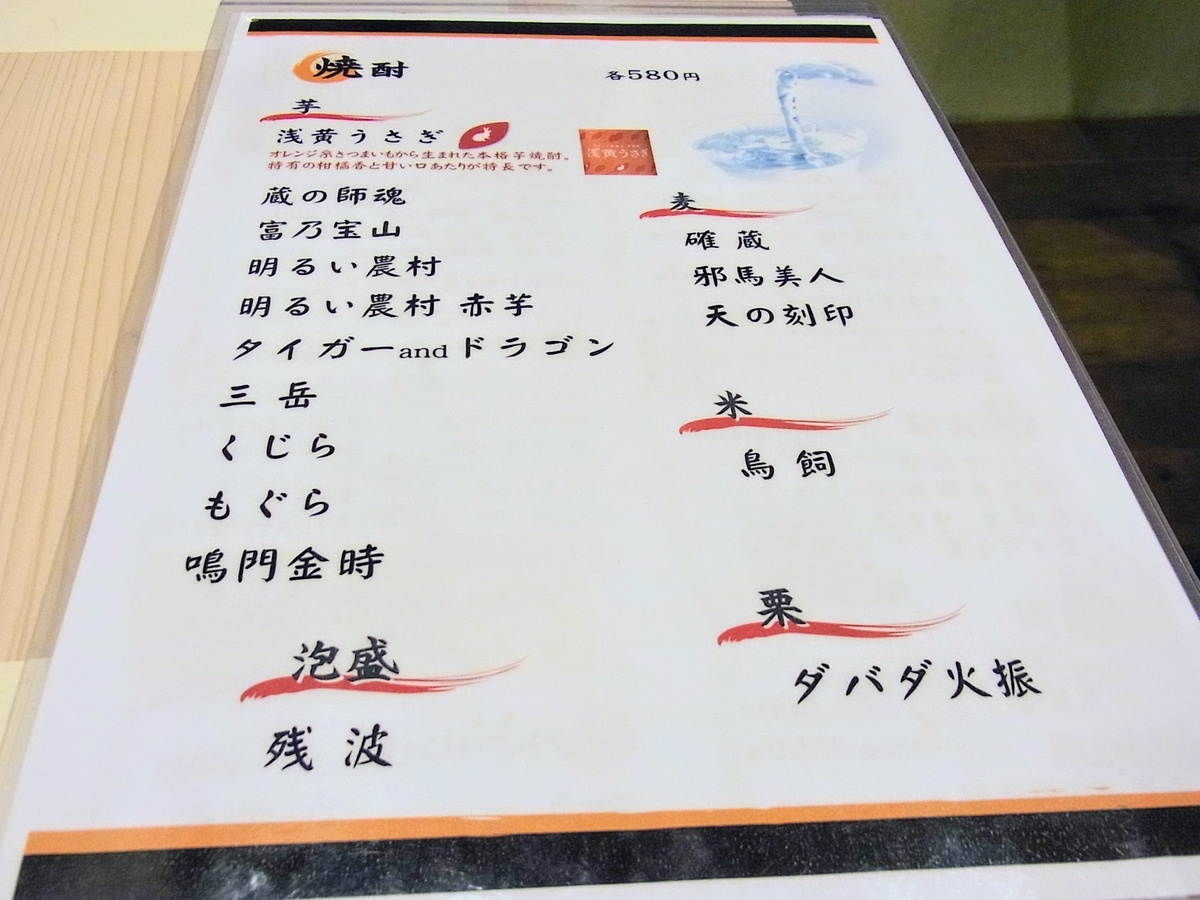 焼酎
各580円
芋
浅黄うさぎ
オレンジ系さつまいもから生まれた本格芋焼酎。
特有の柑橘香と甘い口あたりが特長です。
浅黄うさぎ
蔵の師魂
富乃宝山
明るい農村
明るい農村 赤芋
タイガーandドラゴン
三岳
くじら
もぐら
鳴門金時
泡盛
残波
麦
確蔵
邪馬美人
天の刻印
米
鳥飼
栗
ダバダ火振